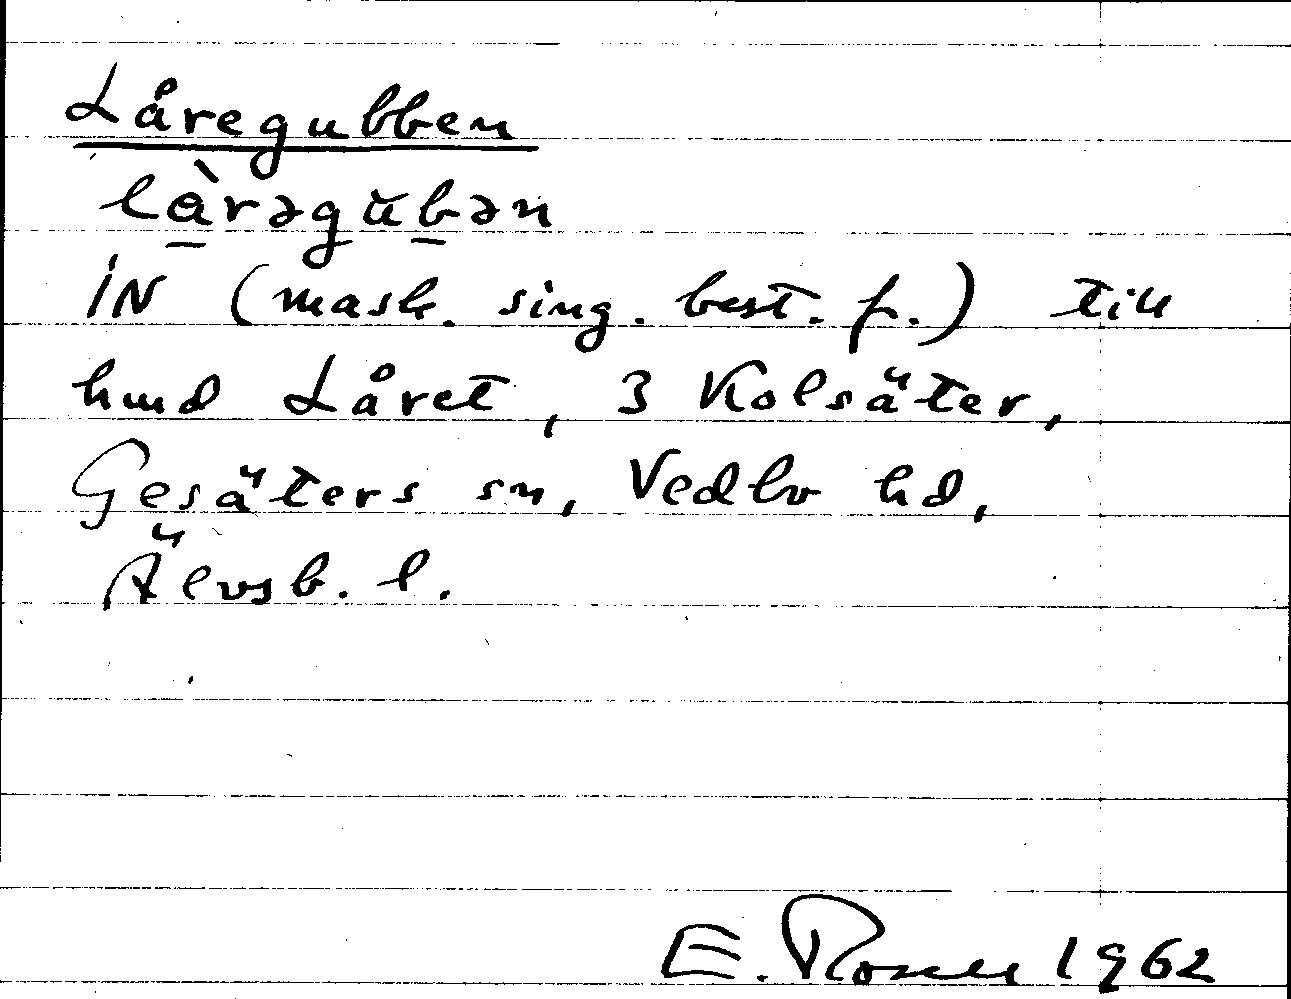 Låregubben
làrəgu̇bən
IN (mask. sing. best. f.) till
hmd Låret, 3 Kolsäter,
Gesäters sn, Vedbo hd,
Älvsb. l.
E. Rosell 1962